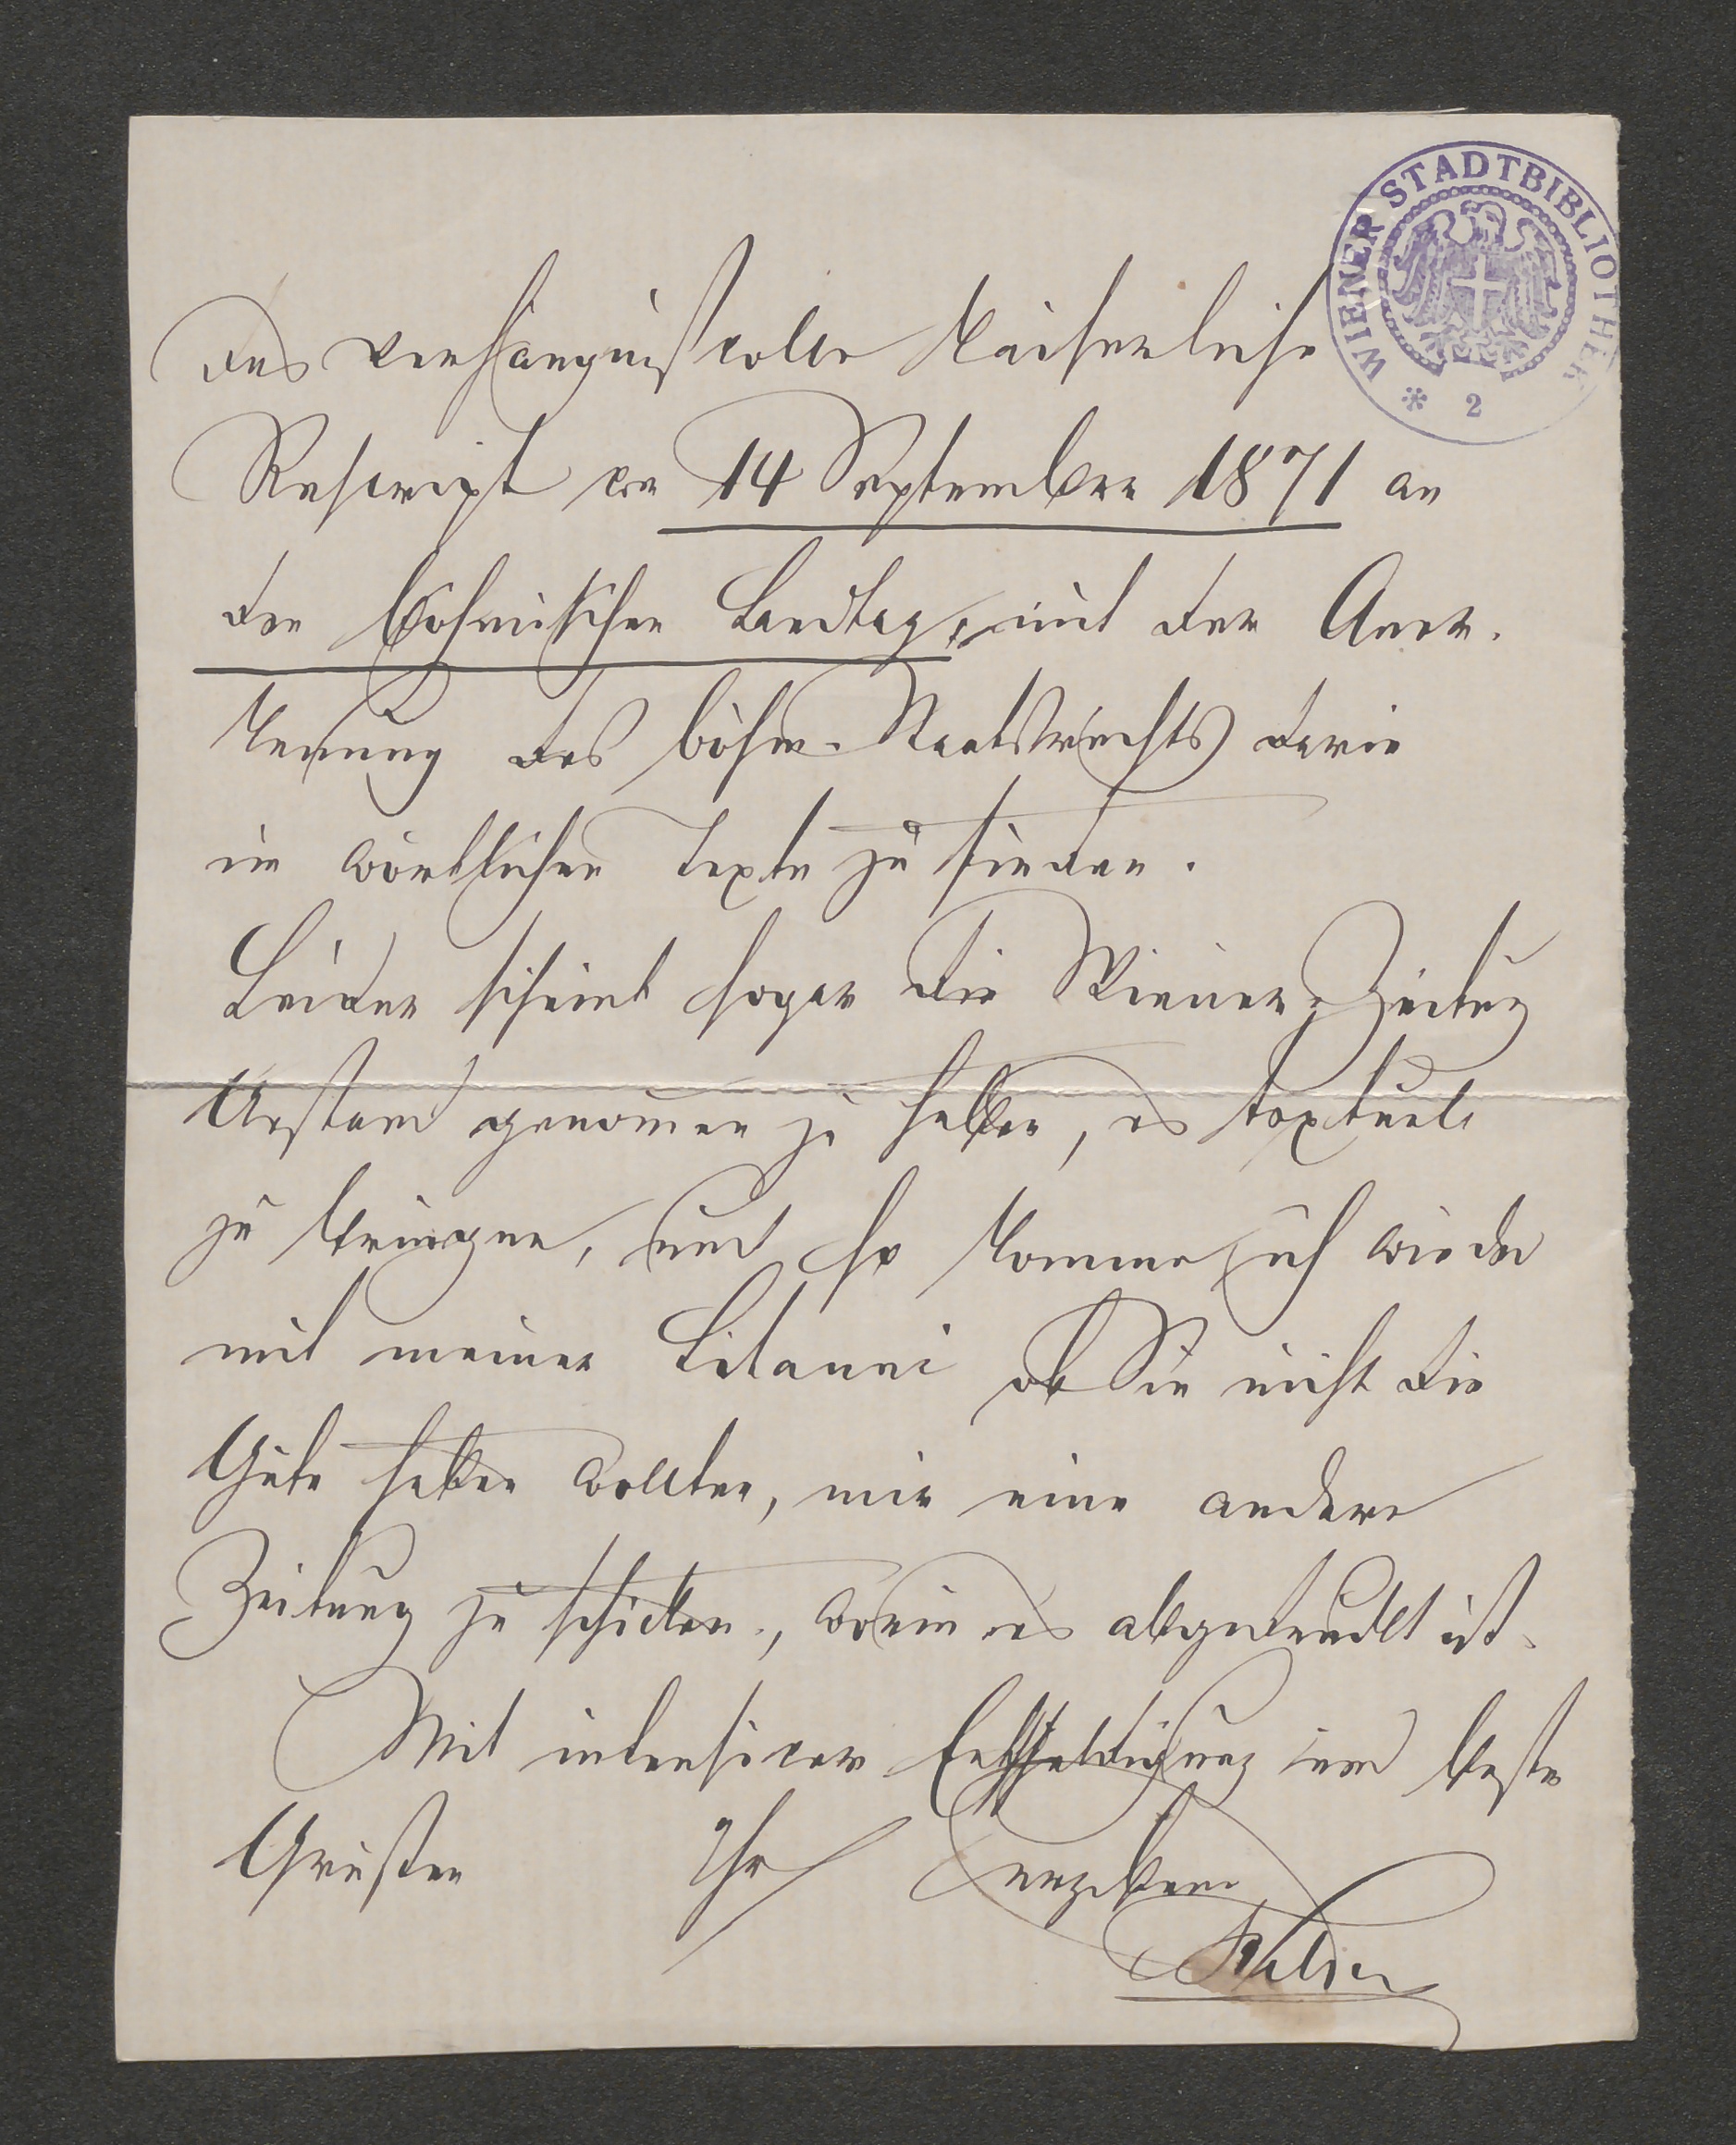 WIENER STADTBIBLIOTHEK
* 2
das verhängnißvolle Kaiserliche
Rescript vom 14 September 1871 an
den böhmischen Landtag, mit der Aner-
kennung des böhm. Staatsrechts darin
im wörtlichen Texte zu finden.
Leider scheint sogar die Wiener-Zeitung
Anstand genommen zu haben, es textuell
zu bringen, und so komme ich wieder
mit meiner Litanei ob Sie nicht die
Güte haben wollten, mir eine andere
Zeitung zu schicken, worin es abgedruckt ist.
Mit intensiver Entschuldigung und besten
Grüßen Ihr ergebener